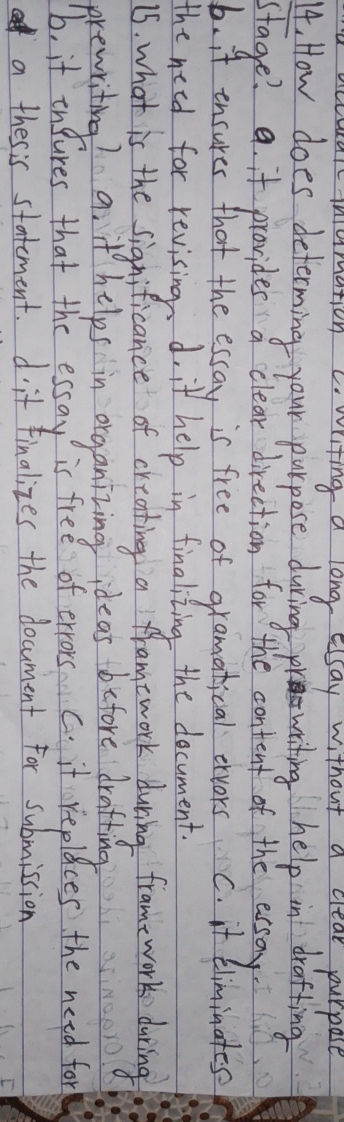 accurate information c. writing a long essay without a clear purpose
14. How does determining your purpose during prewriting help in drafting
stage? a. it provides a clear direction for the content of the essay.
b. it ensures that the essay is free of gramatical errors c. it eliminates
the need for revising d. it help in finalizing the document.
15. what is the significance of creating a framework during framework during
prewriting? a. it helps in organizing ideas before drafting
b. it ensures that the essay is free of errors c. it replaces the need for
a thesis statement. d. it finalizes the document for submission